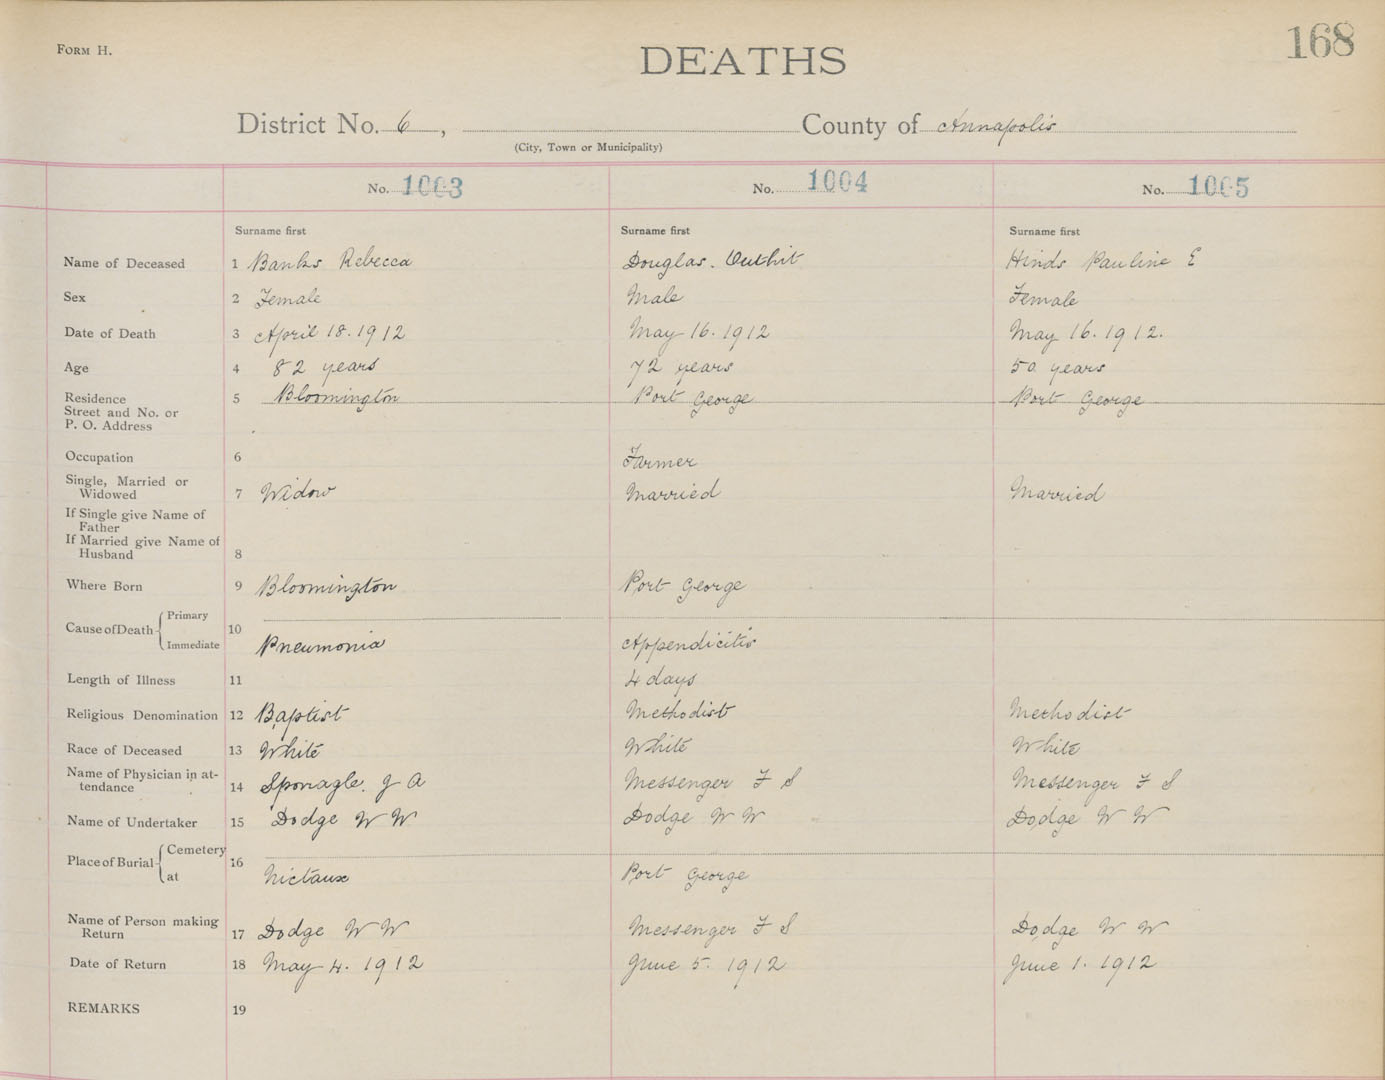 FORM H.
168
DEATHS
District No. 6, County of Annapolis
(City, Town or Municipality)
No. 1003 No. 1004 No. 1005
Surname first Surname first Surname first
Name of Deceased 1 Banks Rebecca Douglas. Outhit Hinds Pauline E
Sex 2 Female Male Female
Date of Death 3 April 18. 1912 May 16. 1912 May 16. 1912.
Age 4 82 years 72 years 50 years
Residence 5 Bloomington Port George Port George
Street and No. or
P. O. Address
Occupation 6 Farmer
Single, Married or
Widowed 7 Widow Married Married
If Single give Name of
Father
If Married give Name of
Husband 8
Where Born 9 Bloomington Port George
Cause of Death Primary 10
Immediate Pneumonia Appendicitis
Length of Illness 11 4 days
Religious Denomination 12 Baptist Methodist Methodist
Race of Deceased 13 White White White
Name of Physician in at-
tendance 14 Sponagle. J A Messenger F S Messenger F S
Name of Undertaker 15 Dodge W W Dodge W W Dodge W W
Place of Burial Cemetery 16
at Nictaux Port George
Name of Person making
Return 17 Dodge W W Messenger F S Dodge W W
Date of Return 18 May 4. 1912 June 5. 1912 June 1. 1912
REMARKS 19